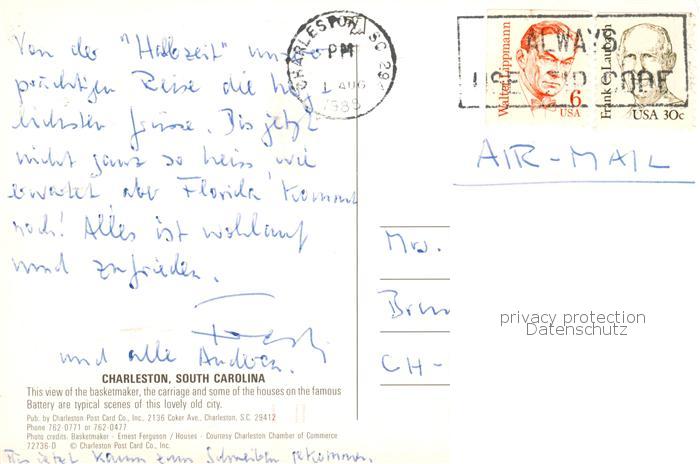 Von der "Halbzeit" unserer
prächtigen Reise die herz-
lichsten Grüsse. Bis jetzt
nicht ganz so heiss wie
erwartet, aber Florida kommt
noch! Alles ist wohlauf
und zufrieden.
und alle Andern.
CHARLESTON, SOUTH CAROLINA
This view of the basketmaker, the carriage and some of the houses on the famous
Battery are typical scenes of this lovely old city.
Pub. by Charleston Post Card Co., Inc., 2136 Coker Ave., Charleston, S.C. 29412
Phone 762-0771 or 762-0477
Photo credits: Basketmaker - Ernest Ferguson / Houses - Courtesy Charleston Chamber of Commerce
72736-D © Charleston Post Card Co., Inc.
Bis jetzt kaum zum Schreiben gekommen.
CHARLESTON, SC 294
PM
1 AUG
1986
ALWAYS
USE ZIP CODE
Walter Lippmann
6
USA
Frank C. Laubach
USA 30c
AIR-MAIL
Mrs.
CH-
privacy protection
Datenschutz